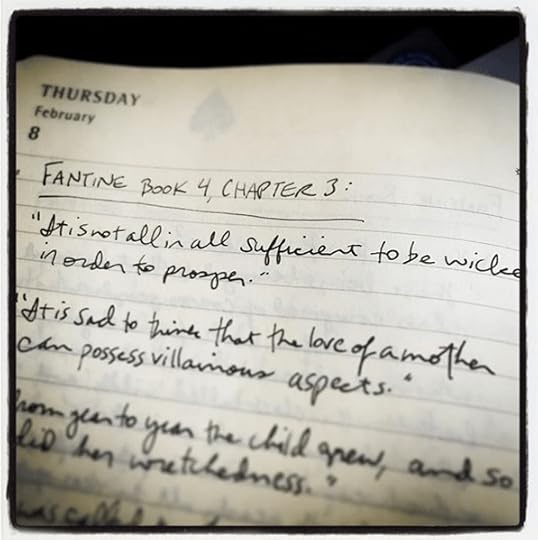 THURSDAY
February
8
FANTINE BOOK 4, CHAPTER 3:
"It is not all in all sufficient to be wicke
in order to prosper."
"It is sad to think that the love of a mother
can possess villainous aspects."
rom year to year the child grew, and so
did her wretchedness."
was called